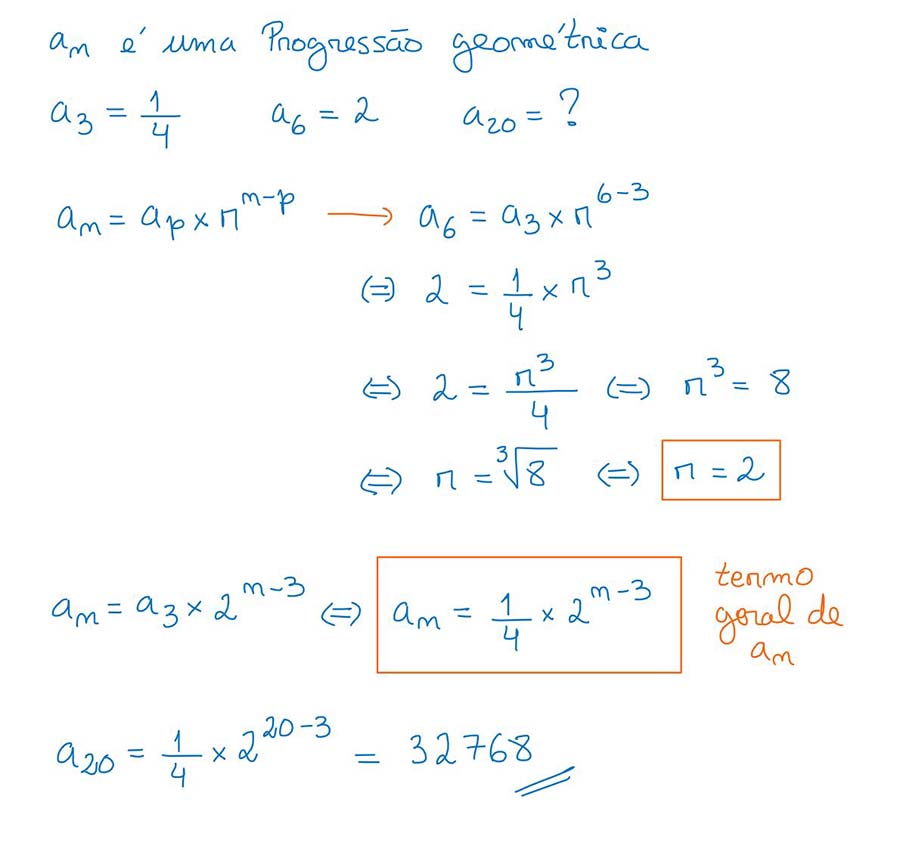 aₙ é uma Progressão geométrica
a₃ = 1/4 a₆ = 2 a₂₀ = ?
aₙ = aₚ × r^(n-p) → a₆ = a₃ × r^(6-3)
(=) 2 = 1/4 × r³
(=) 2 = r³/4 (=) r³ = 8
(=) r = ³√8 (=) r = 2
aₙ = a₃ × 2^(n-3) (=) aₙ = 1/4 × 2^(n-3)
termo
geral de
aₙ
a₂₀ = 1/4 × 2^(20-3) = 32768